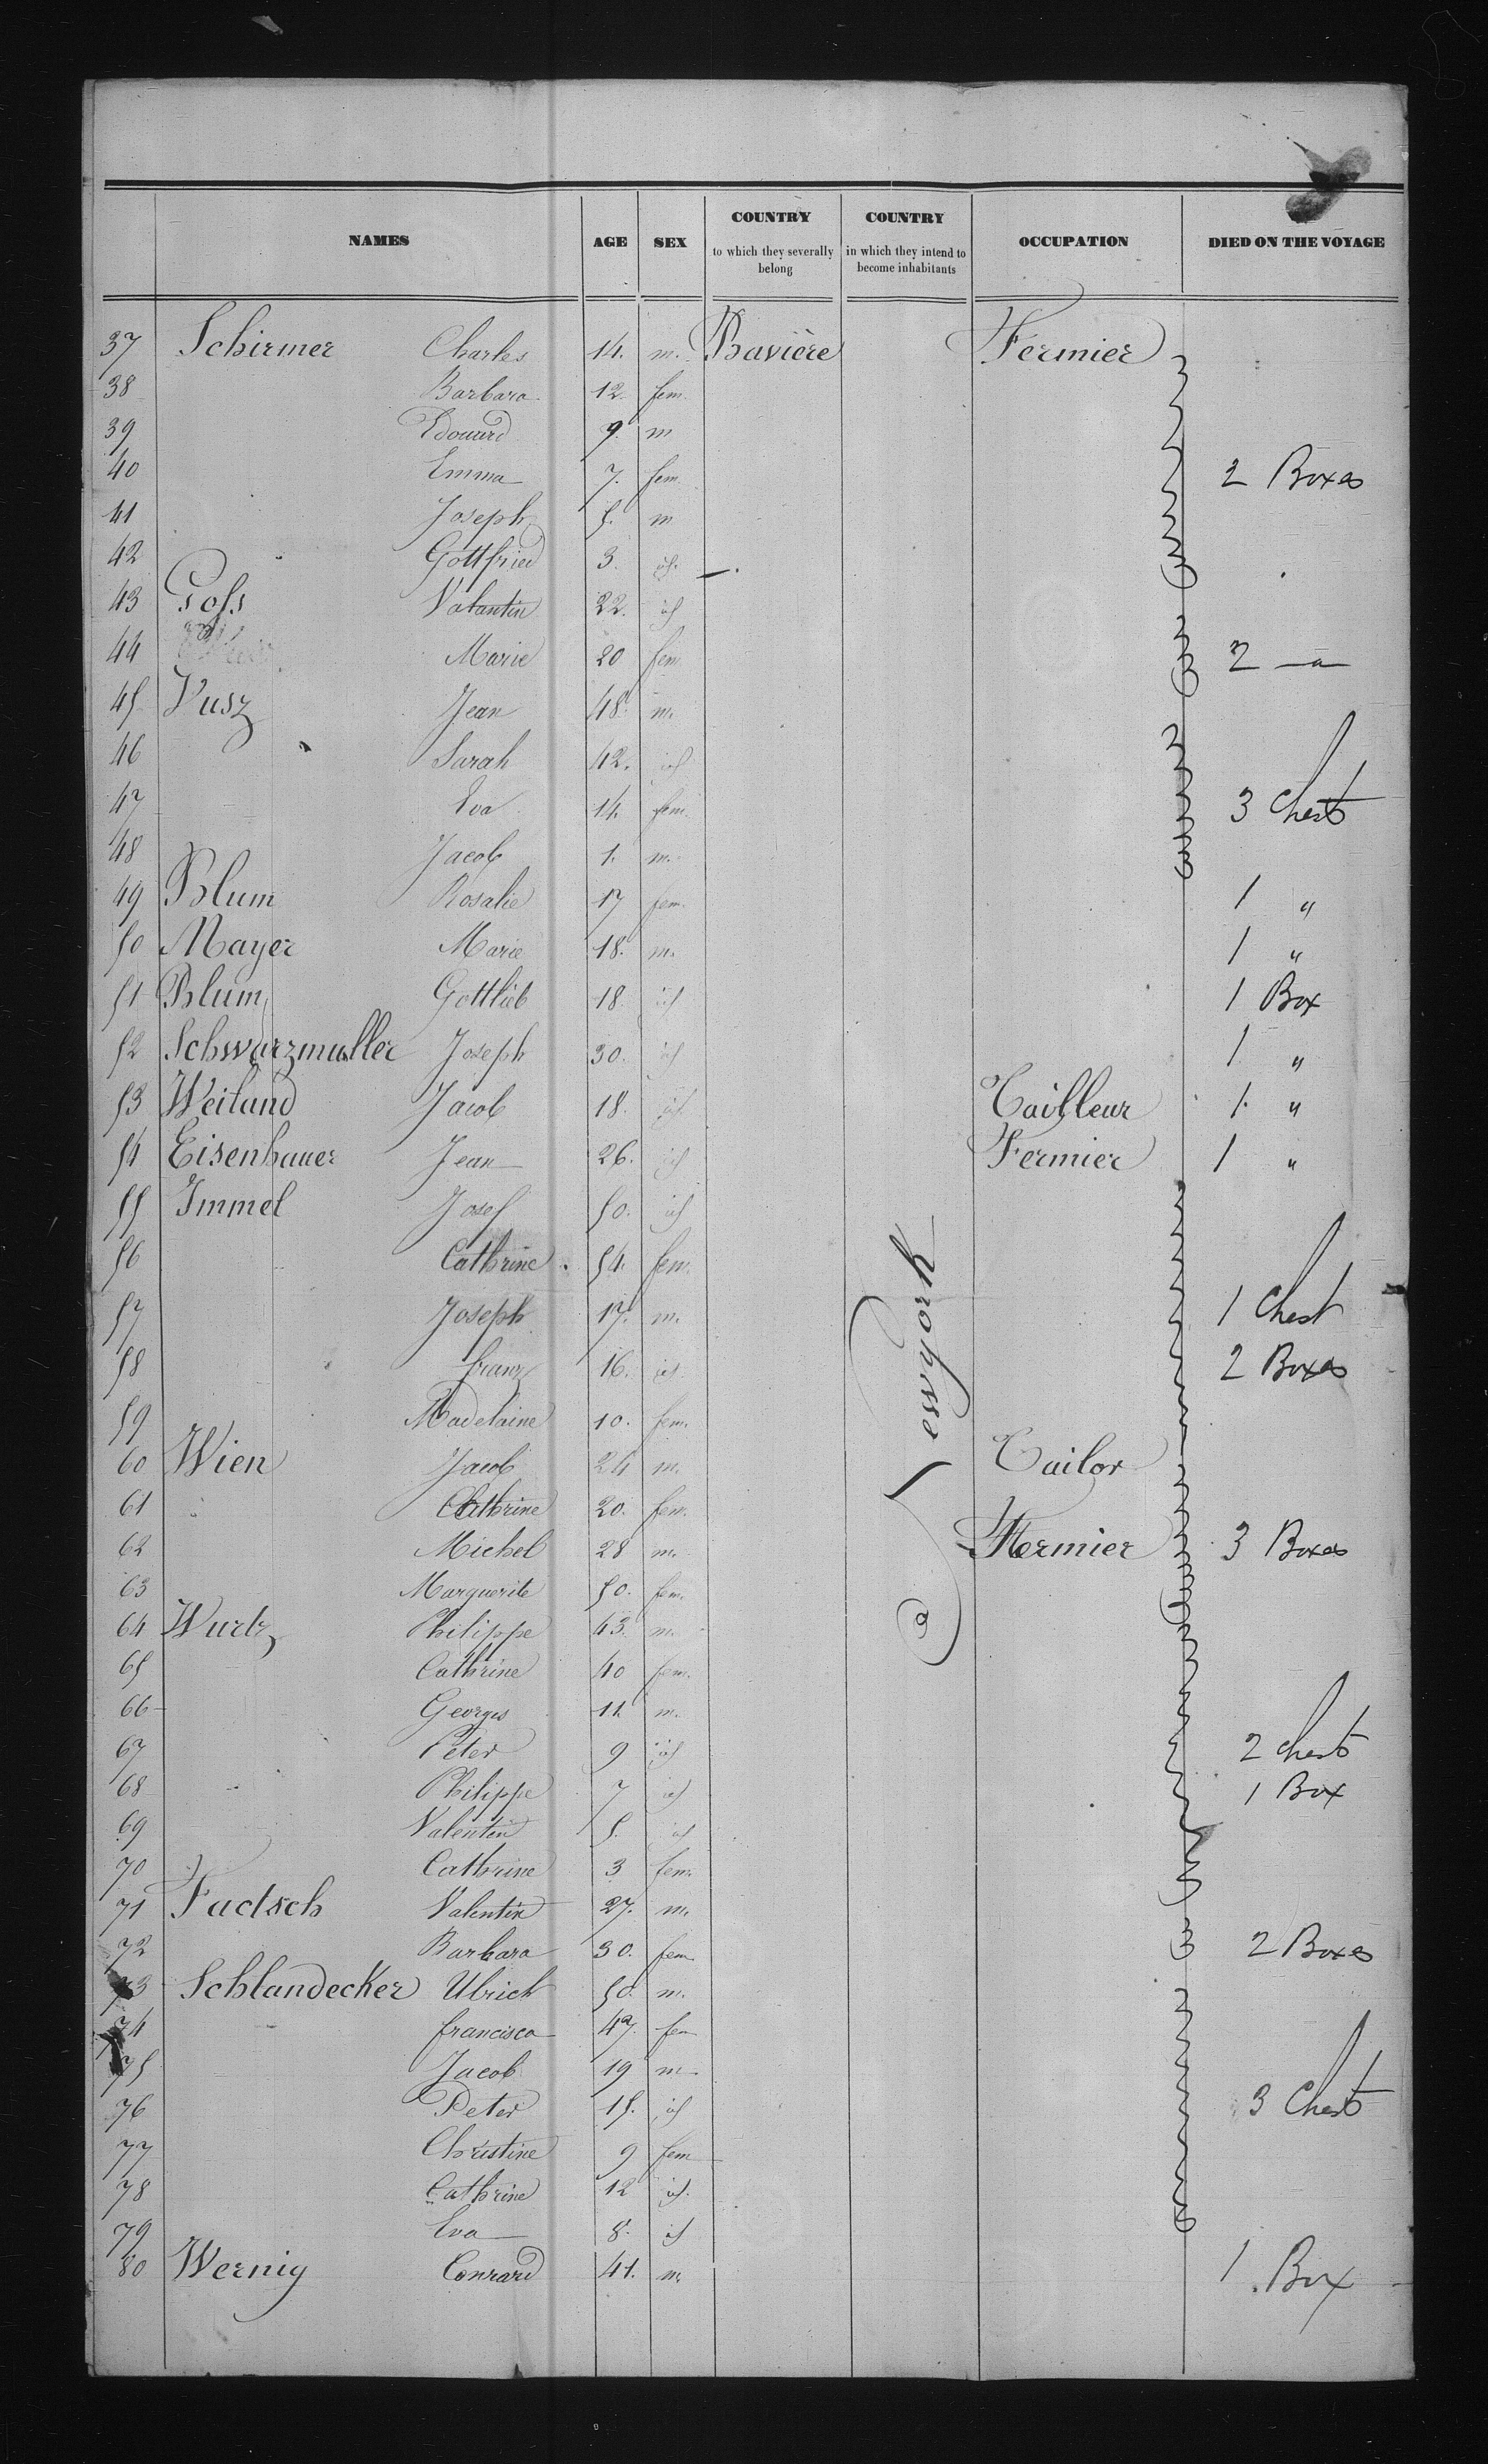 NAMES AGE SEX COUNTRY to which they severally belong COUNTRY in which they intend to become inhabitants OCCUPATION DIED ON THE VOYAGE
37 Schirmer Charles 14. m. Bavière Fermier
38 Barbara 12. fem.
39 Edouard 9. m
40 Emma 7. fem. 2 Boxes
41 Joseph 5. m
42 Gottfried 3. id.
43 Valantin 22. id
44 Marie 20 fem. 2 —"—
45 Vusz Jean 48. m.
46 Sarah 42. id
47 Eva 14. fem. 3 Chests
48 Jacob 1. m.
49 Blum Rosalie 17 fem. 1 "
50 Mayer Marie 18. m. 1 "
51 Blum Gottlieb 18 id 1 Box
52 Schwarzmuller Joseph 30. id 1 "
53 Weiland Jacob 18. id. Tailleur 1. "
54 Eisenhauer Jean 26. id Fermier 1 "
55 Immel Josef 50. id
56 Cathrine 54. fem.
57 Joseph 17. m. 1 Chest
58 franz 16. id. 2 Boxes
59 Madelaine 10. fem.
60 Wien Jacob 24 m. Tailor
61 Cathrine 20. fem.
62 Michel 28 m. Fermier 3 Boxes
63 Marguerite 50. fem.
64 Wurtz Philippe 43. m.
65 Cathrine 40 fem.
66 Georges 11. m.
67 Peter 9 id 2 chests
68 Philippe 7 id 1 Box
69 Valentin 5. id
70 Cathrine 3 fem.
71 Valentin 27. m.
72 Barbara 30. fem 2 Boxes
73 Schlandecker Ulrich 50. m.
74 francisca 47. fem
75 Jacob 19 m
76 Peter 15. id 3 Chests
77 Christine 9 fem
78 Cathrine 12 id.
79 Eva 8. id
80 Wernig Conrard 41. m. 1 Box